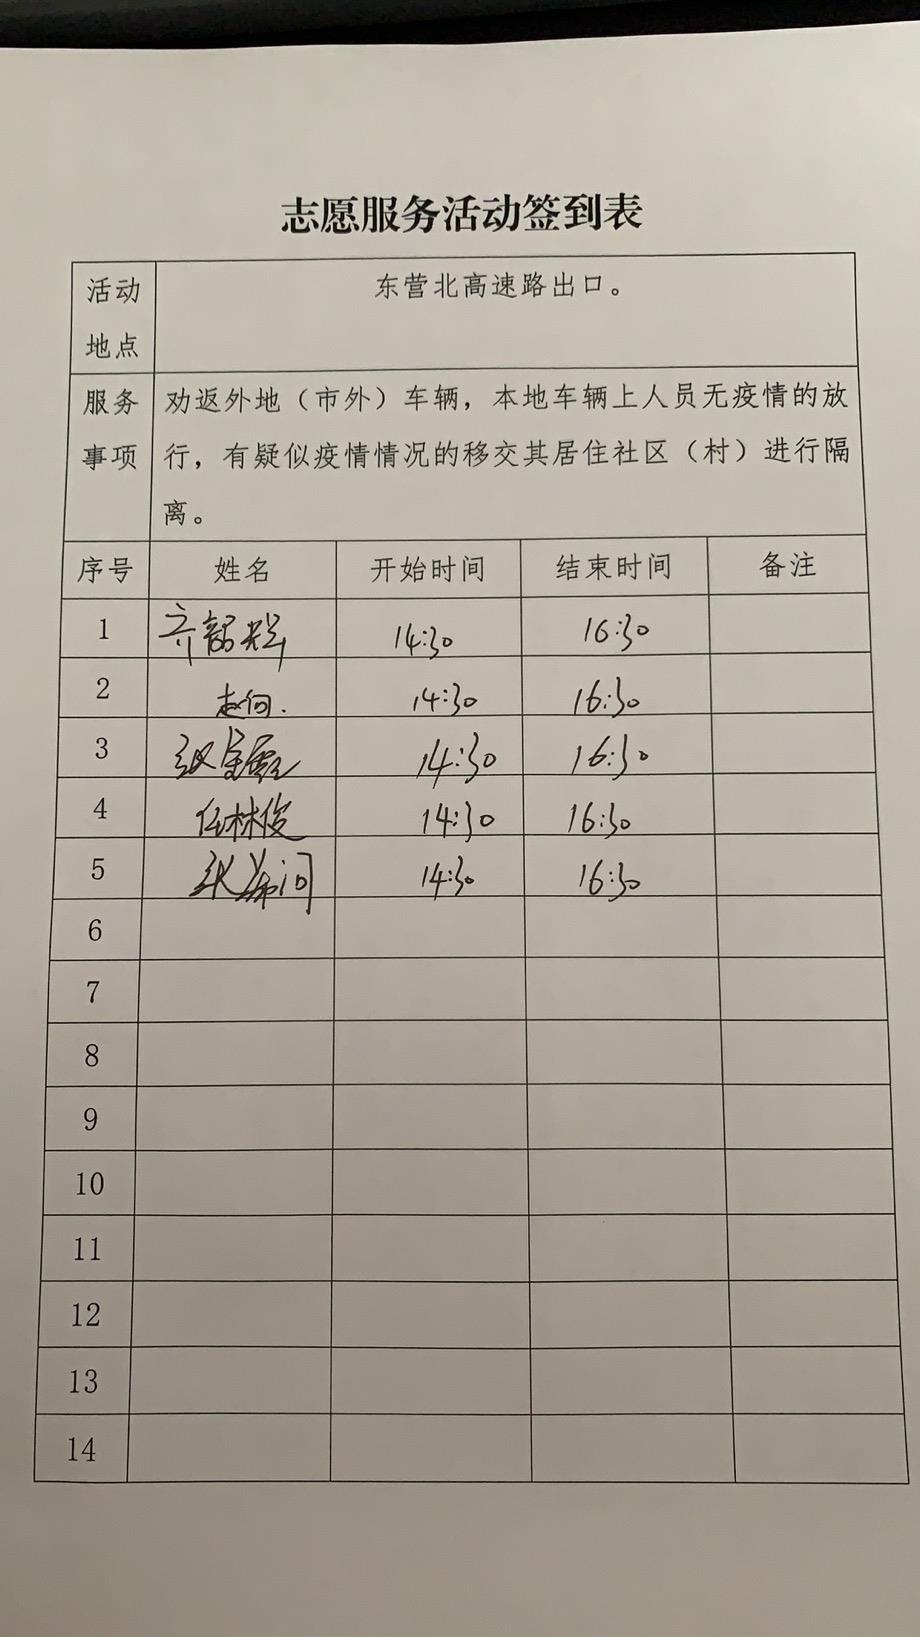 志愿服务活动签到表
活动地点 东营北高速路出口。
服务事项 劝返外地（市外）车辆，本地车辆上人员无疫情的放
行，有疑似疫情情况的移交其居住社区（村）进行隔
离。
序号 姓名 开始时间 结束时间 备注
1 齐韶辉 14:30 16:30
2 赵何. 14:30 16:30
3 14:30 16:30
4 任林俊 14:30 16:30
5 张 14:30 16:30
6
7
8
9
10
11
12
13
14